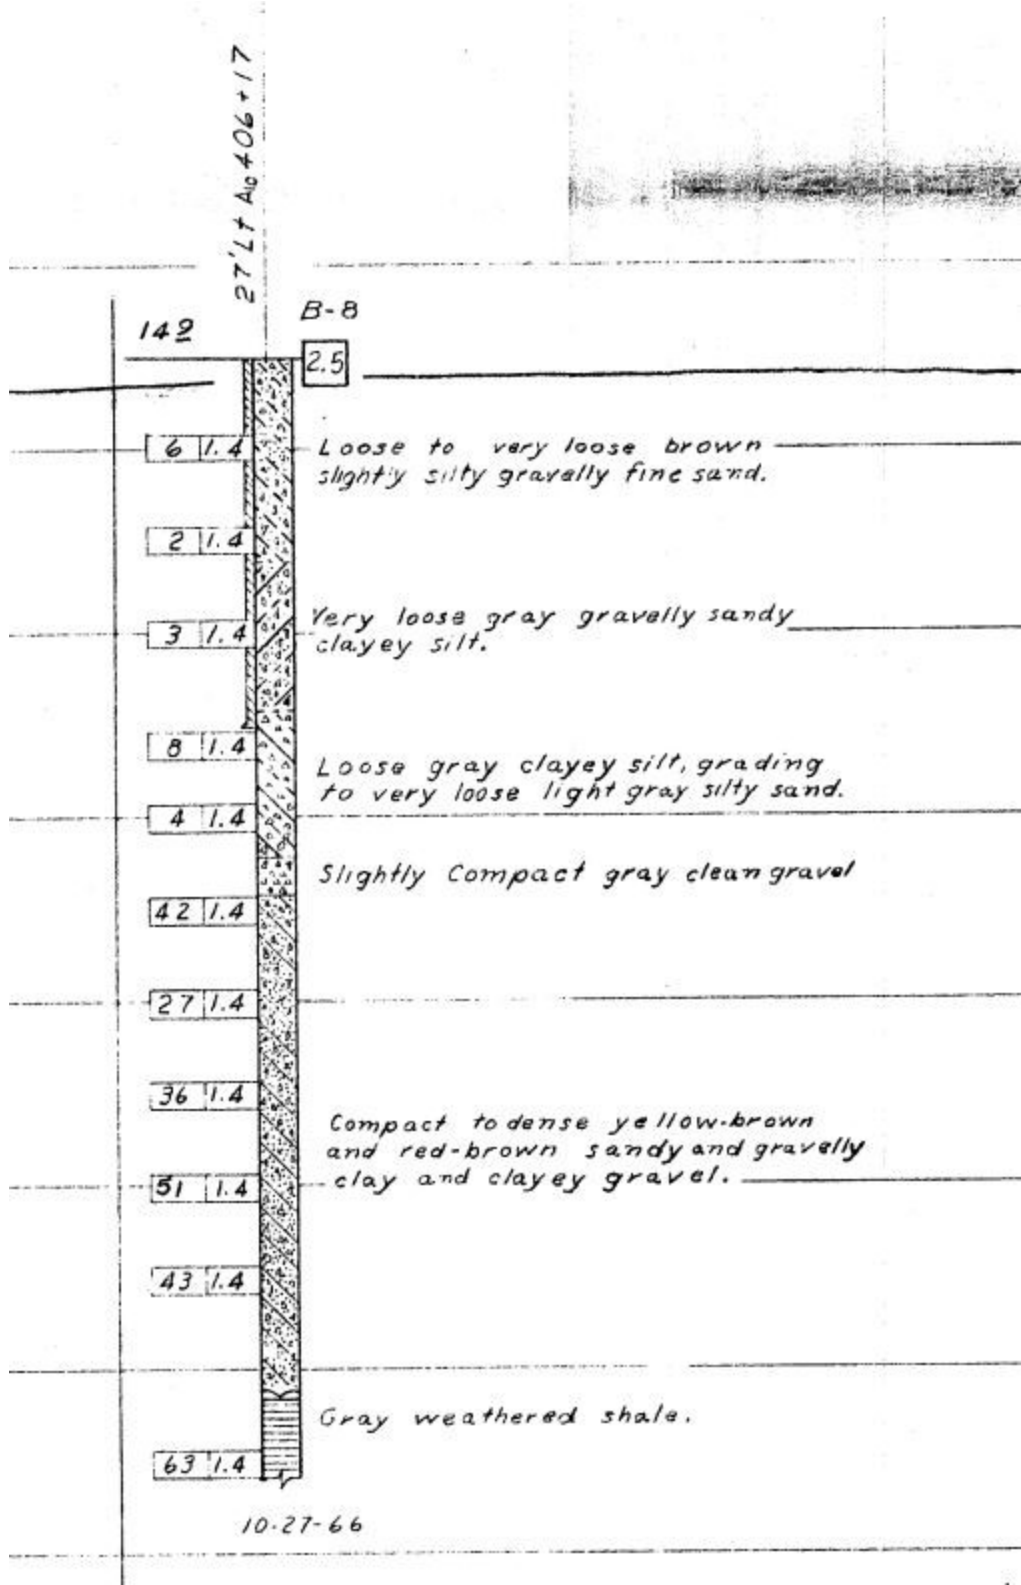 27' Lt A10 406+17
B-8
142
2.5
6 1.4
Loose to very loose brown
slightly silty gravelly fine sand.
2 1.4
3 1.4
Very loose gray gravelly sandy
clayey silt.
8 1.4
Loose gray clayey silt, grading
to very loose light gray silty sand.
4 1.4
Slightly Compact gray clean gravel
42 1.4
27 1.4
36 1.4
Compact to dense yellow-brown
and red-brown sandy and gravelly
clay and clayey gravel.
51 1.4
43 1.4
Gray weathered shale.
63 1.4
10-27-66